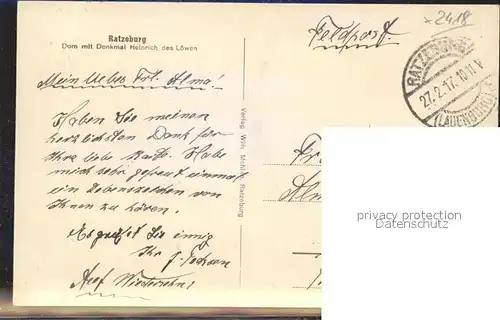 Ratzeburg
Dom mit Denkmal Heinrich des Löwen
Feldpost.
x 2418
RATZEBURG
27.2.17. 10-11 V
(LAUENBURG)
Mein liebes Frl. Alma!
Haben Sie meinen
herzlichsten Dank für
Ihre liebe Karte. Habe
mich sehr gefreut einmal
ein Lebenszeichen von
Ihnen zu hören.
Es grüßt Sie innig
Ihr
Auf Wiedersehn!
Verlag Wilh. Ratzeburg
privacy protection
Datenschutz